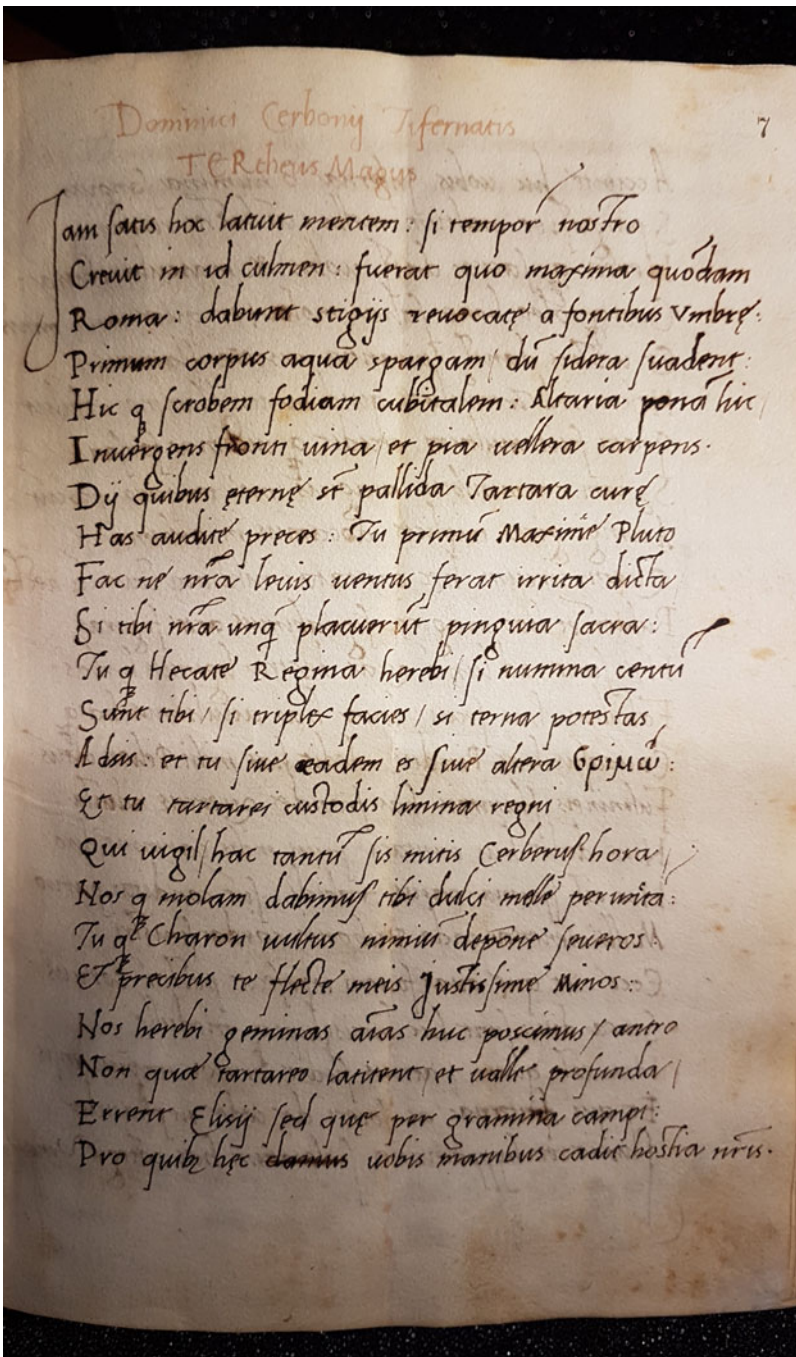 Dominici Cerbonij Tifernatis
7
TERcheus Magus
Iam satis hoc latuit mentem: si tempor̄ nostro
Crevit in id culmen: fuerat quo maxima quōdam
Roma: dabunt stigijs revocatę a fontibus Vmbrę:
Primum corpus aqua spargam/ dū sidera suadent:
Hic q̨ scrobem fodiam cubitalem: Altaria ponā hic/
Invergens fronti uina/ et pia uellera carpens.
Dij quibus ęternę st̄ pallida Tartara curę
Has audite preces: Tu primū Maxime Pluto
Fac ne nr̄a levis uentus ferat irrita dicta
Si tibi nr̄a unq̄ placuerūt pinguia sacra:
Tu q̨ Hecate Regina herebi/ si numina centū
Sunt tibi/ si triplex facies/ si terna potestas
Adsis: et tu sive eadem es sive altera βριμώ:
Et tu tartarei custodis limina regni
Qui uigil/ hac tantū sis mitis Cerberus hora/
Nos q̨ molam dabimus tibi dulci melle perunctā:
Tu q̨ Charon uultus nimiū depone severos:
Et precibus te flecte meis Iustissime Minos:
Nos herebi geminas aīas huc poscimus/ antro
Non quae tartareo latitent/ et ualle profunda/
Errent Elisij sed quę per gramina campi:
Pro quibꝫ hęc uobis manibus cadit hostia nr̄is.